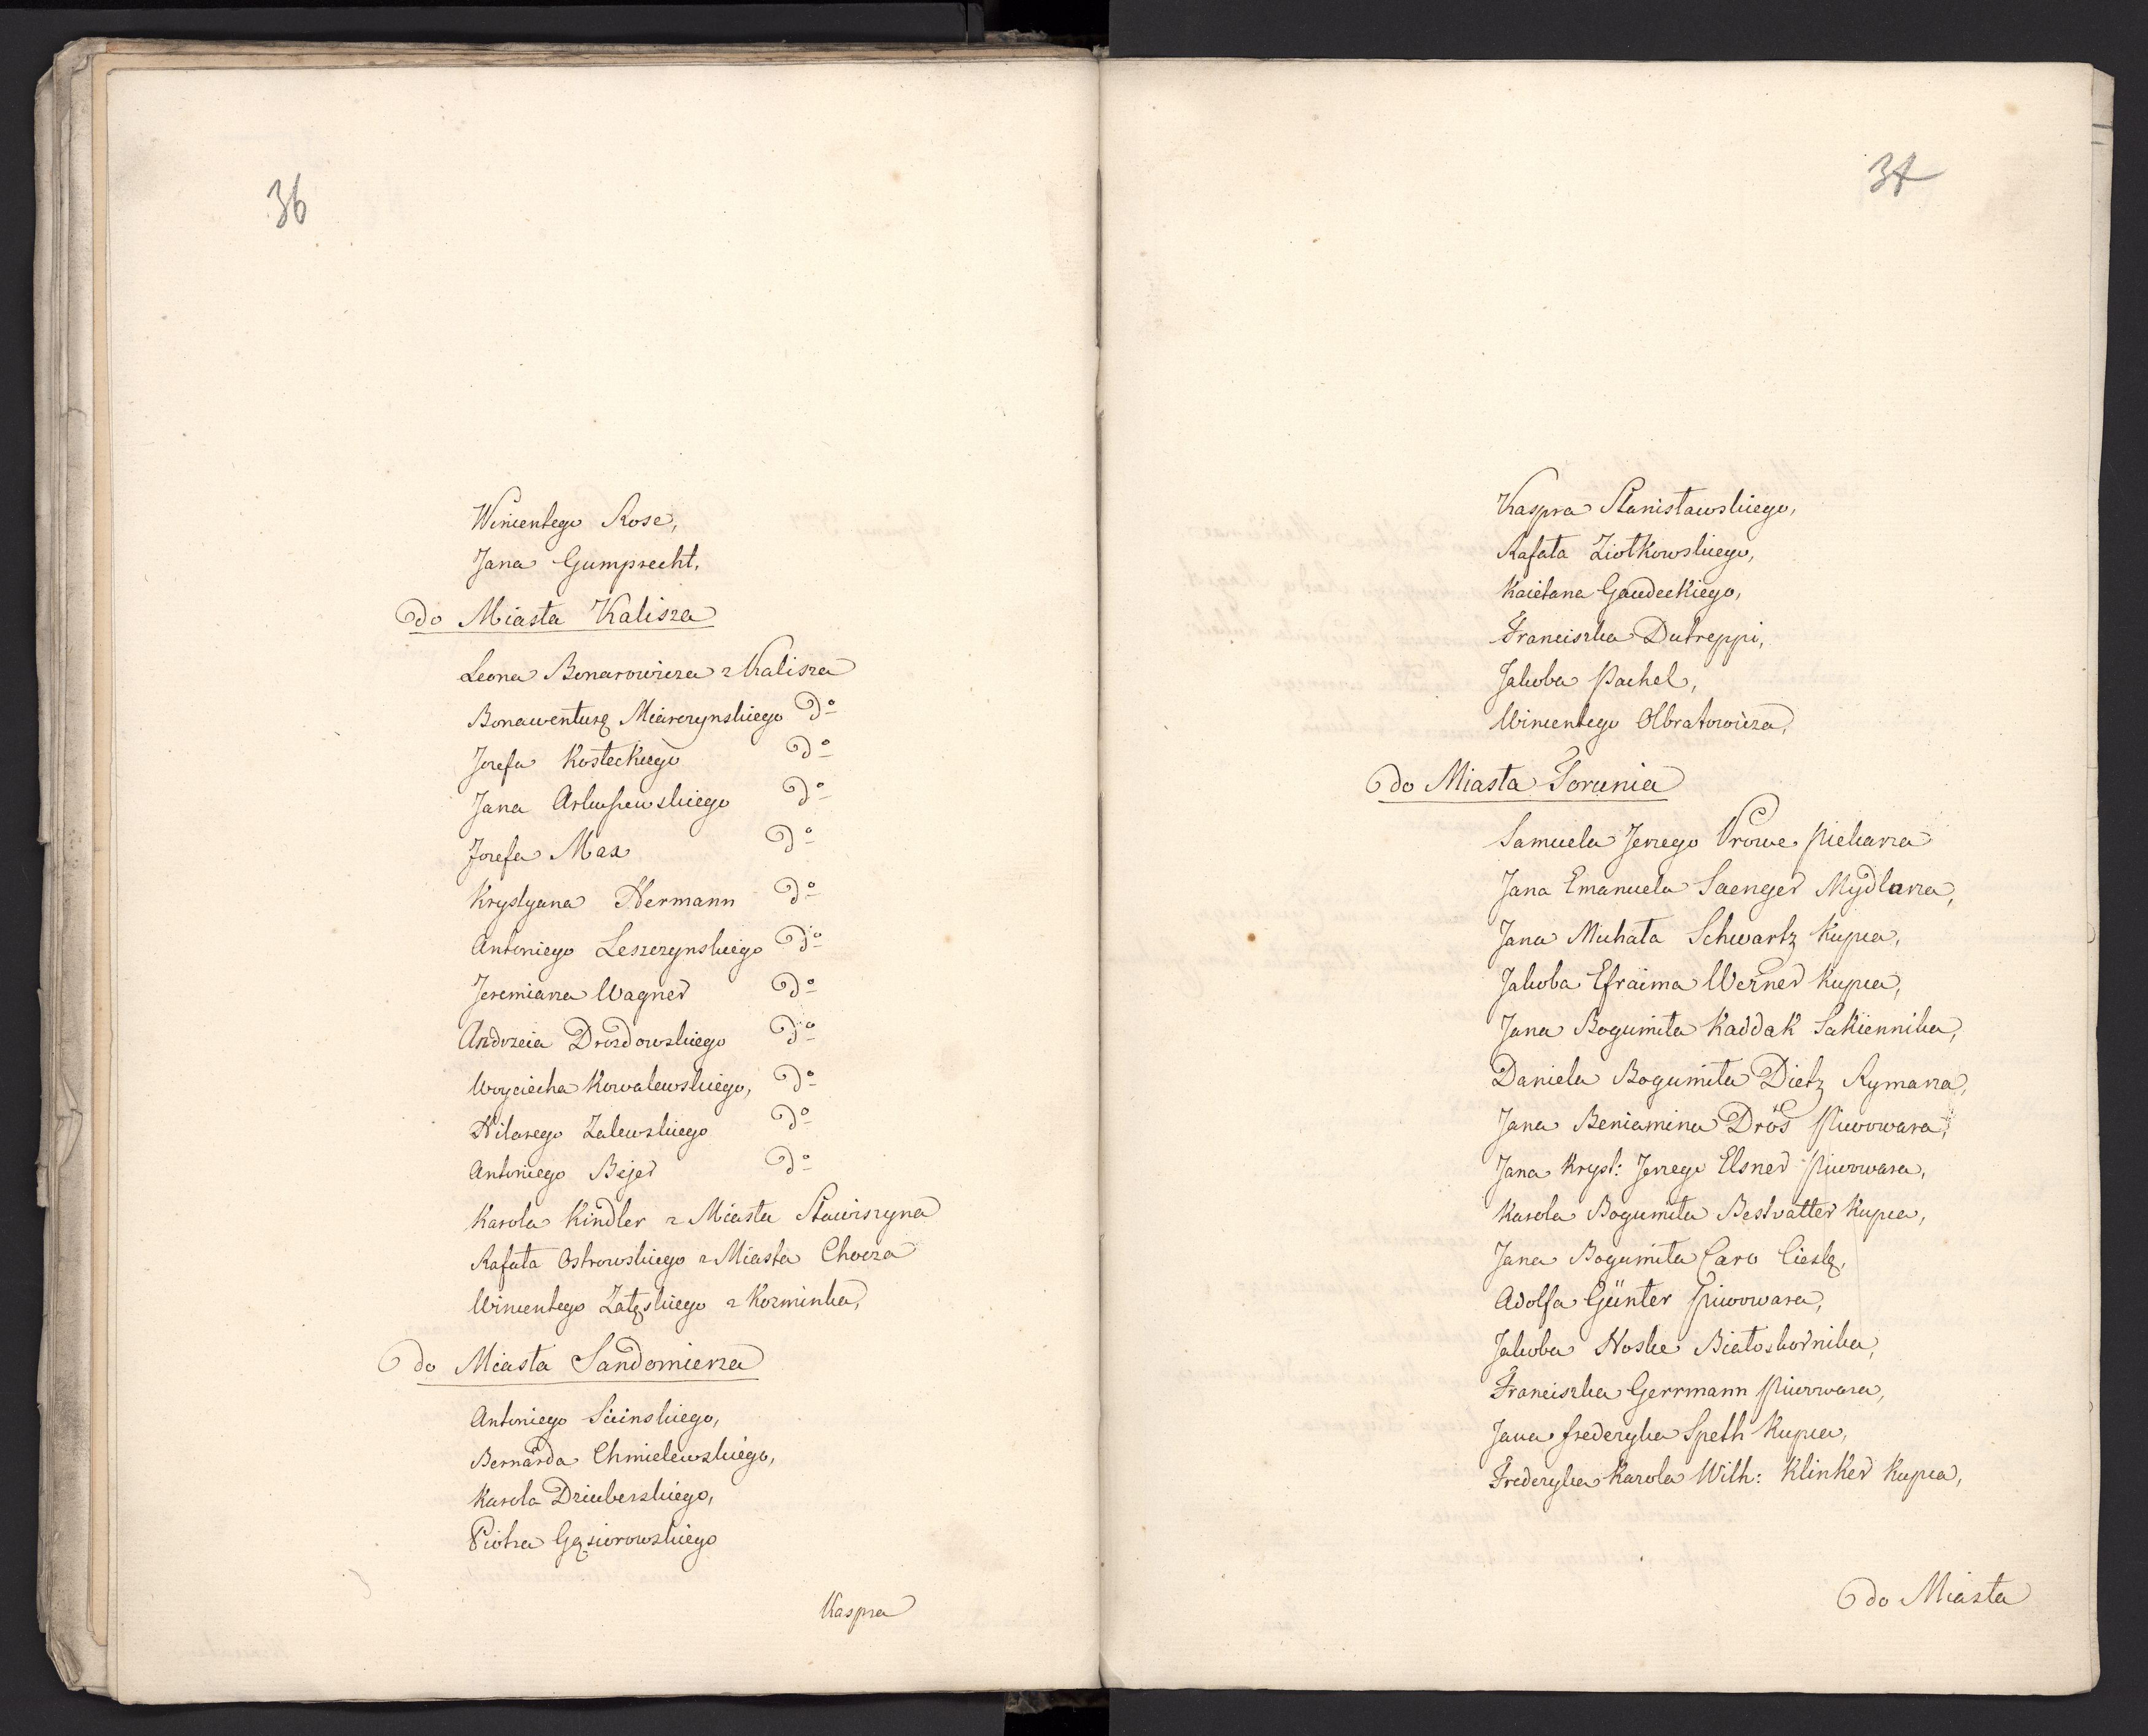 36
Wincentego Rose,
Jana Gumprecht,
do Miasta Kalisza
Leona Bonarowicza z Kalisza
Bonawenturę Miarczynskiego do
Jozefa Kosteckiego do
Jana do
Jozefa Max do
Krystyana Hermann do
Antoniego Leszczynskiego do
Jeremiasza Wagner do
Andrzeia Drozdowskiego do
Woyciecha Kowalewskiego, do
Hilarego Zalewskiego do
Antoniego Bejer do
Karola Kindler z Miasta Stawiszyna
Rafała Ostrowskiego z Miasta Chocza
Wincentego Załęskiego z Kozminka,
do Miasta Sandomierza
Antoniego Sicinskiego,
Bernarda Chmielewskiego,
Karola Dziuberskiego,
Piotra Gąsiorowskiego
Kaspra
37
Kaspra Stanisławskiego,
Rafała Ziołkowskiego,
Kaietana Gaudeckiego,
Franciszka Dutreppi,
Jakoba Pachel,
Wincentego Olbratowicza,
do Miasta Torunia
Samuela Jerzego Prowe piekarza
Jana Emanuela Saenger Mydlarza,
Jana Michała Schwartz Kupca,
Jakoba Efraima Werner Kupca,
Jana Bogumiła Kaddak Sukiennika,
Daniela Bogumiła Dietz Rymarza,
Jana Beniamina Drös piwowara,
Jana Kryst: Jerzego Elsner piwowara,
Karola Bogumiła Bestvatter Kupca,
Jana Bogumiła Caro Cieslę,
Adolfa Günter piwowara,
Jakoba Noske Białoskornika,
Franciszka Gerrmann piwowara,
Jana frederyka Speth Kupca,
Frederyka Karola Wilh: Klinker Kupca,
do Miasta